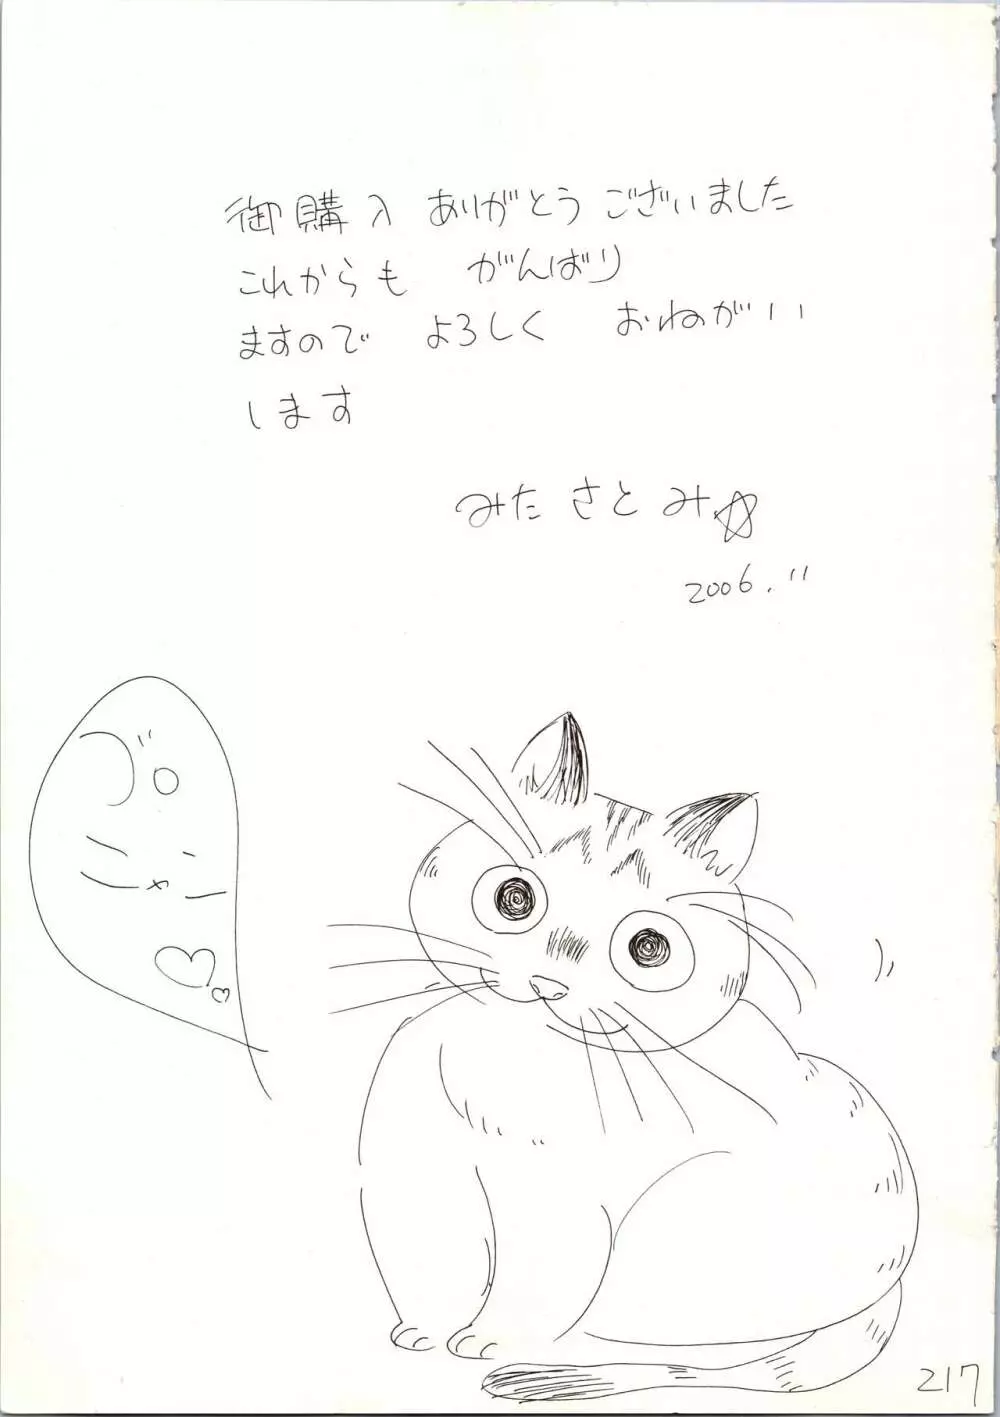 御購入 ありがとう ございました
これからも がんばり
ますので よろしく おねがい
します
みた さとみ☆
2006.11
217